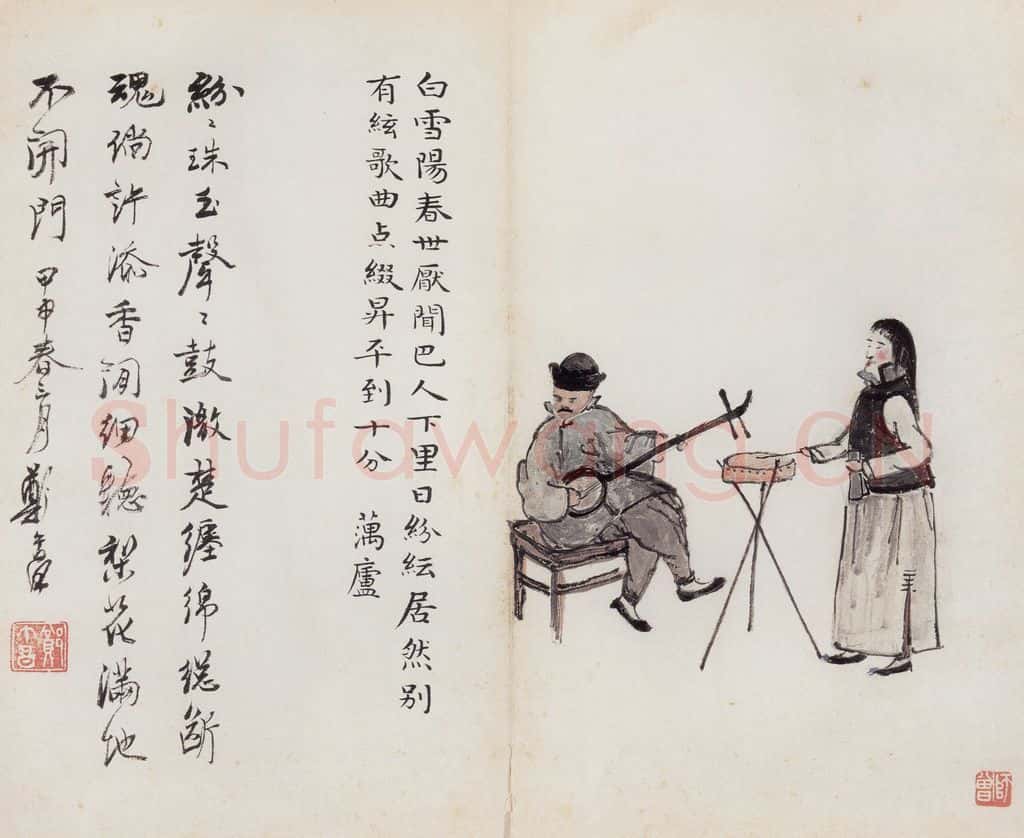 白雪陽春世厭聞巴人下里日紛紜居然別
有絃歌曲点綴昇平到十分 蕅廬
紛〻珠玉聲〻鼓激楚纏綿總斷
魂倘許添香閒細聽梨花滿地
不開門 甲申春二月 鄭
師曾
Shufawang.CN